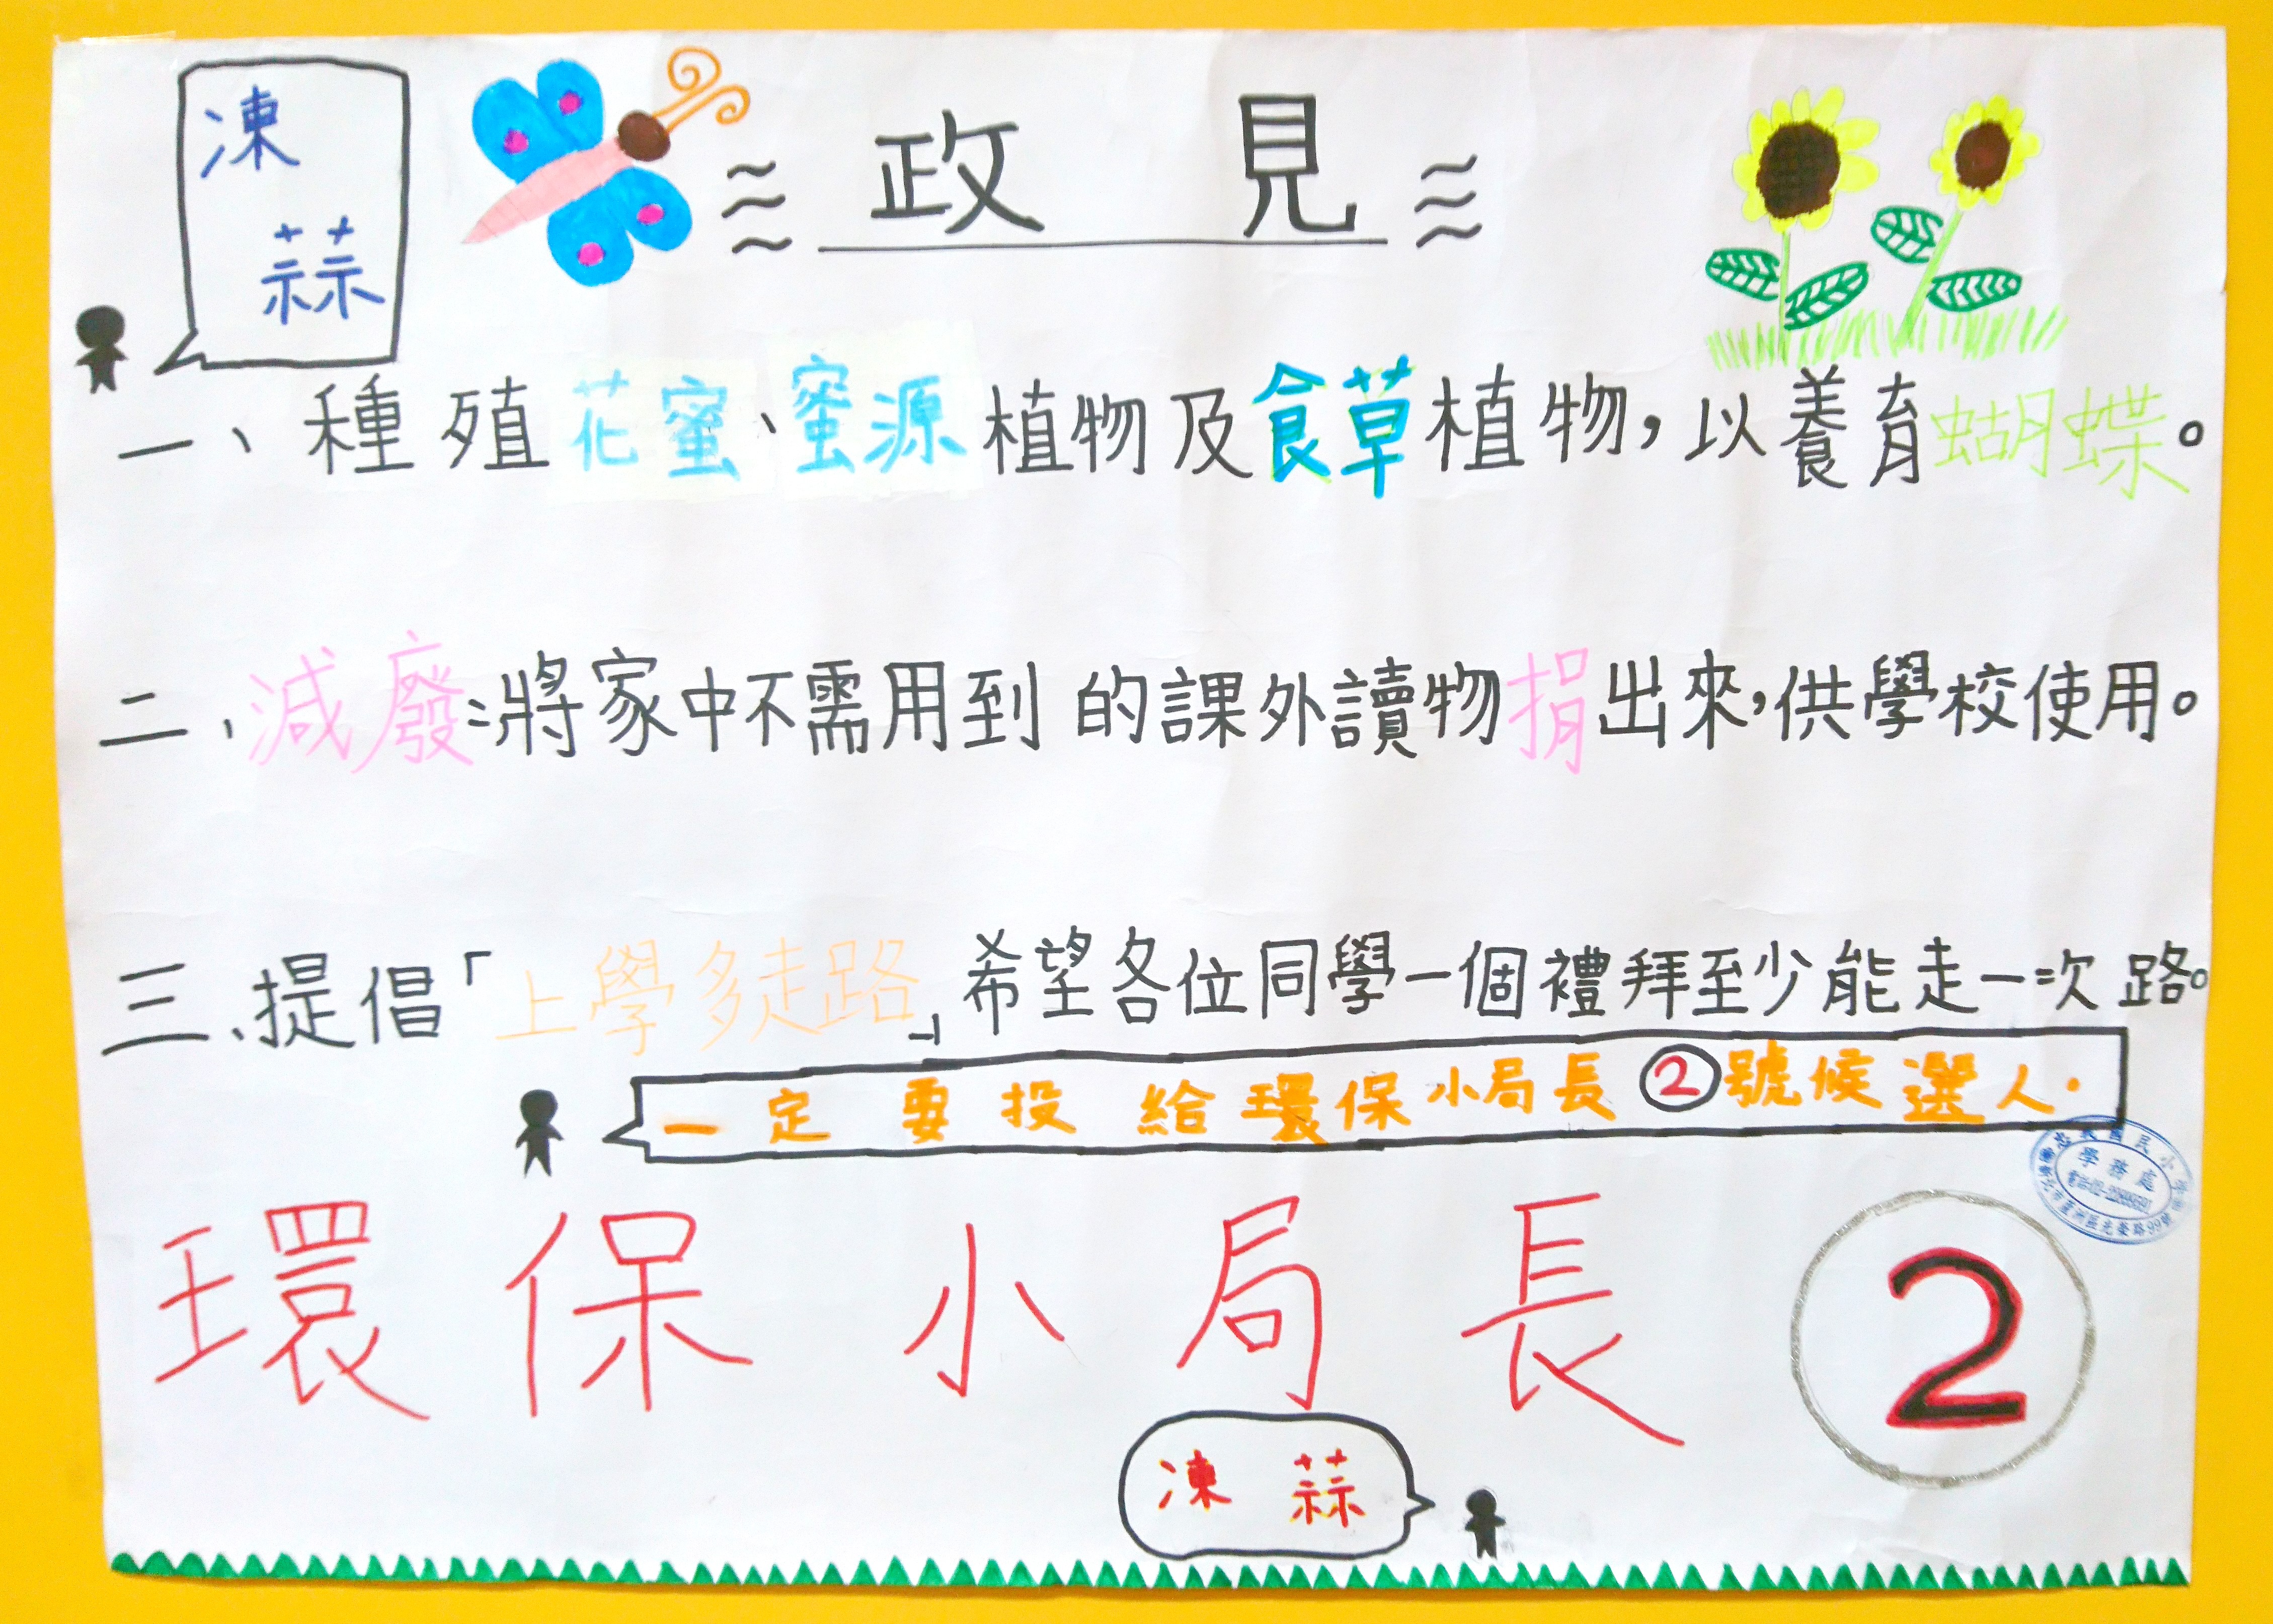 凍
蒜
政見
一、種殖花蜜、蜜源植物及食草植物，以養育蝴蝶。
二、減廢：將家中不需用到的課外讀物捐出來，供學校使用。
三、提倡「上學多走路」希望各位同學一個禮拜至少能走一次路。
一定要投給環保小局長②號候選人.
環保小局長 2
凍蒜
國民小學
學務處
蘆洲區光榮路99號